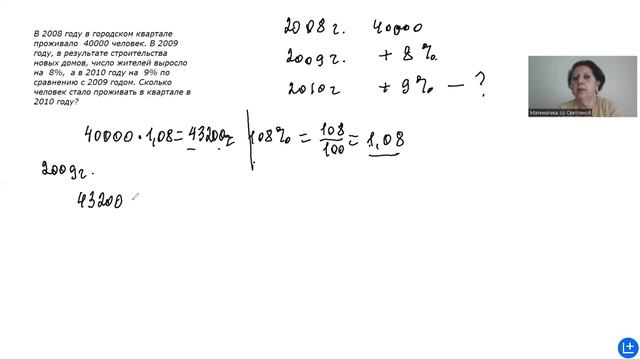 В 2008 году в городском квартале
проживало 40000 человек. В 2009
году, в результате строительства
новых домов, число жителей выросло
на 8%, а в 2010 году на 9% по
сравнению с 2009 годом. Сколько
человек стало проживать в квартале в
2010 году?
2008г. 40000
2009г. + 8%
2010г + 9% — ?
40000 · 1,08 = 43200ч
108% = 108/100 = 1,08
2009г.
43200
Математика со Светланой